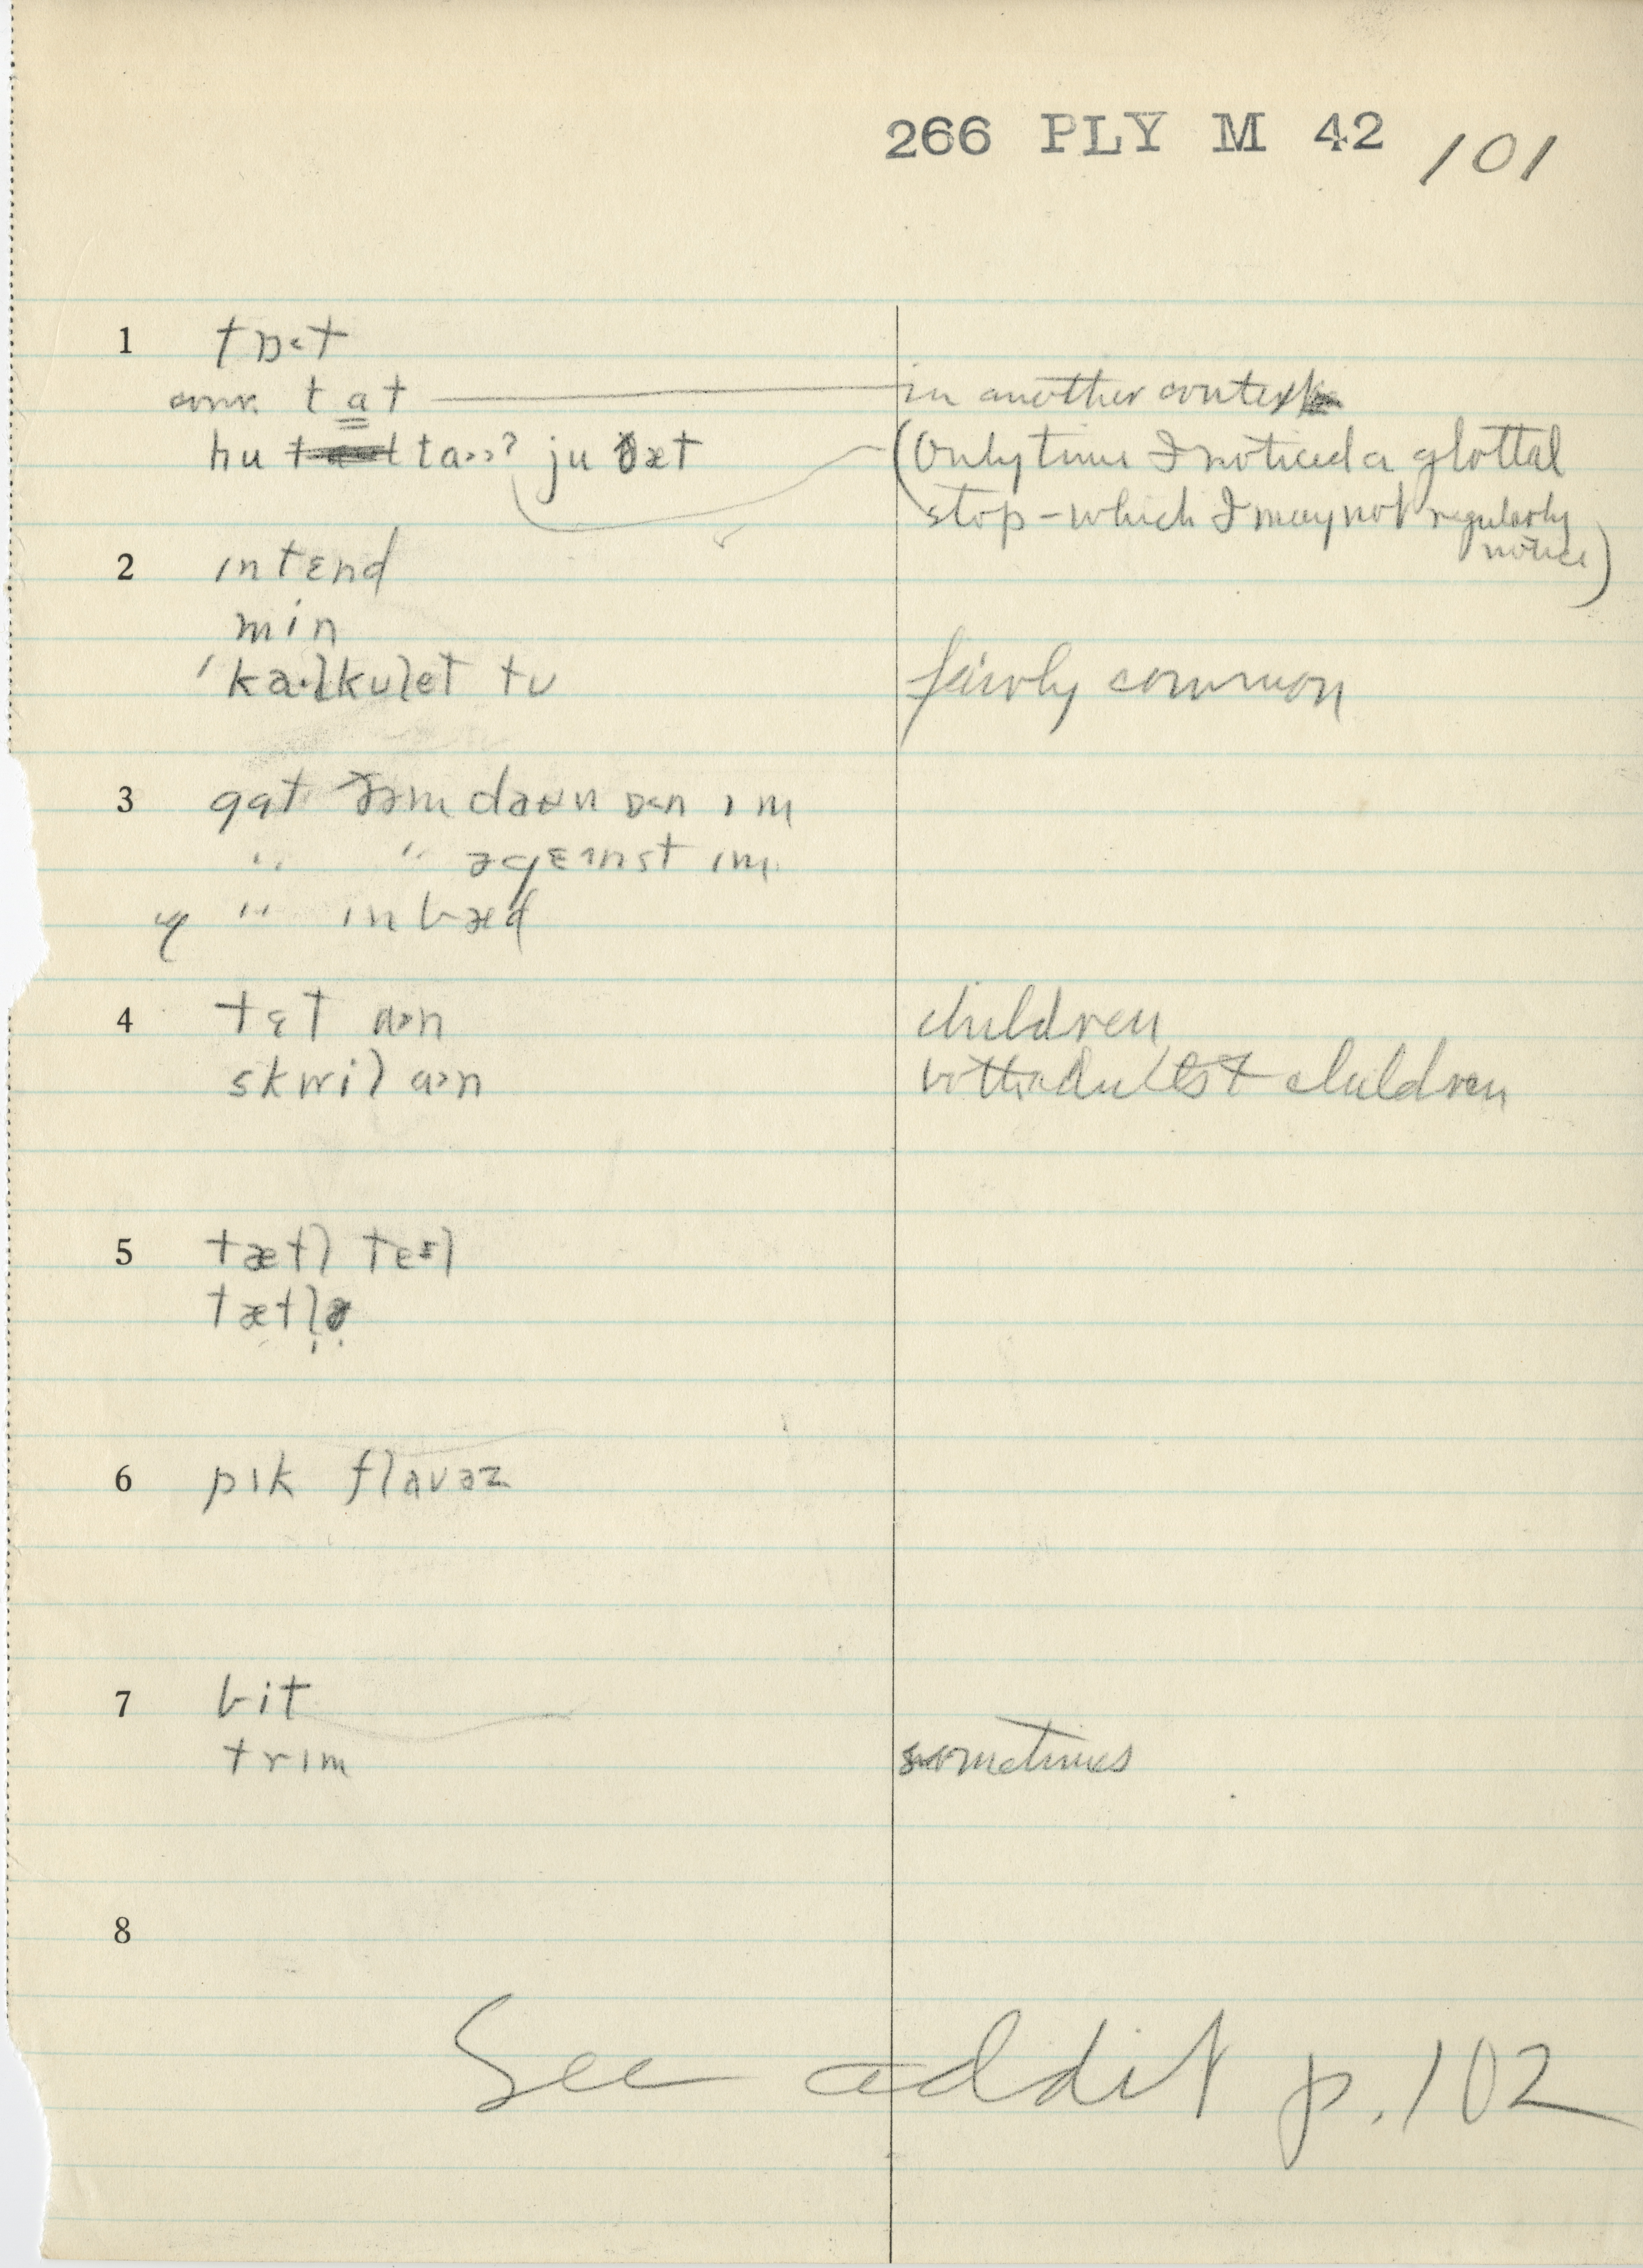 266 PLY M 42 101
1 tɒ<t
conv. ta̳t in another context
hu ta>>ʔ ju ðæt (Only time I noticed a glottal
stop – which I may not regularly
notice)
2 intɛnd
min
'ka·lkulet tu fairly common
3 gat ðəm daʊn ɒ<n ɪm
" " əgɛɪnst ɪm
" in bæd
4 tɛt a>n children
skwil a>n both adults & children
5 tætl
tætlə
6 pɪk flavəz
7 bit
trɪm sometimes
8
See addit p. 102